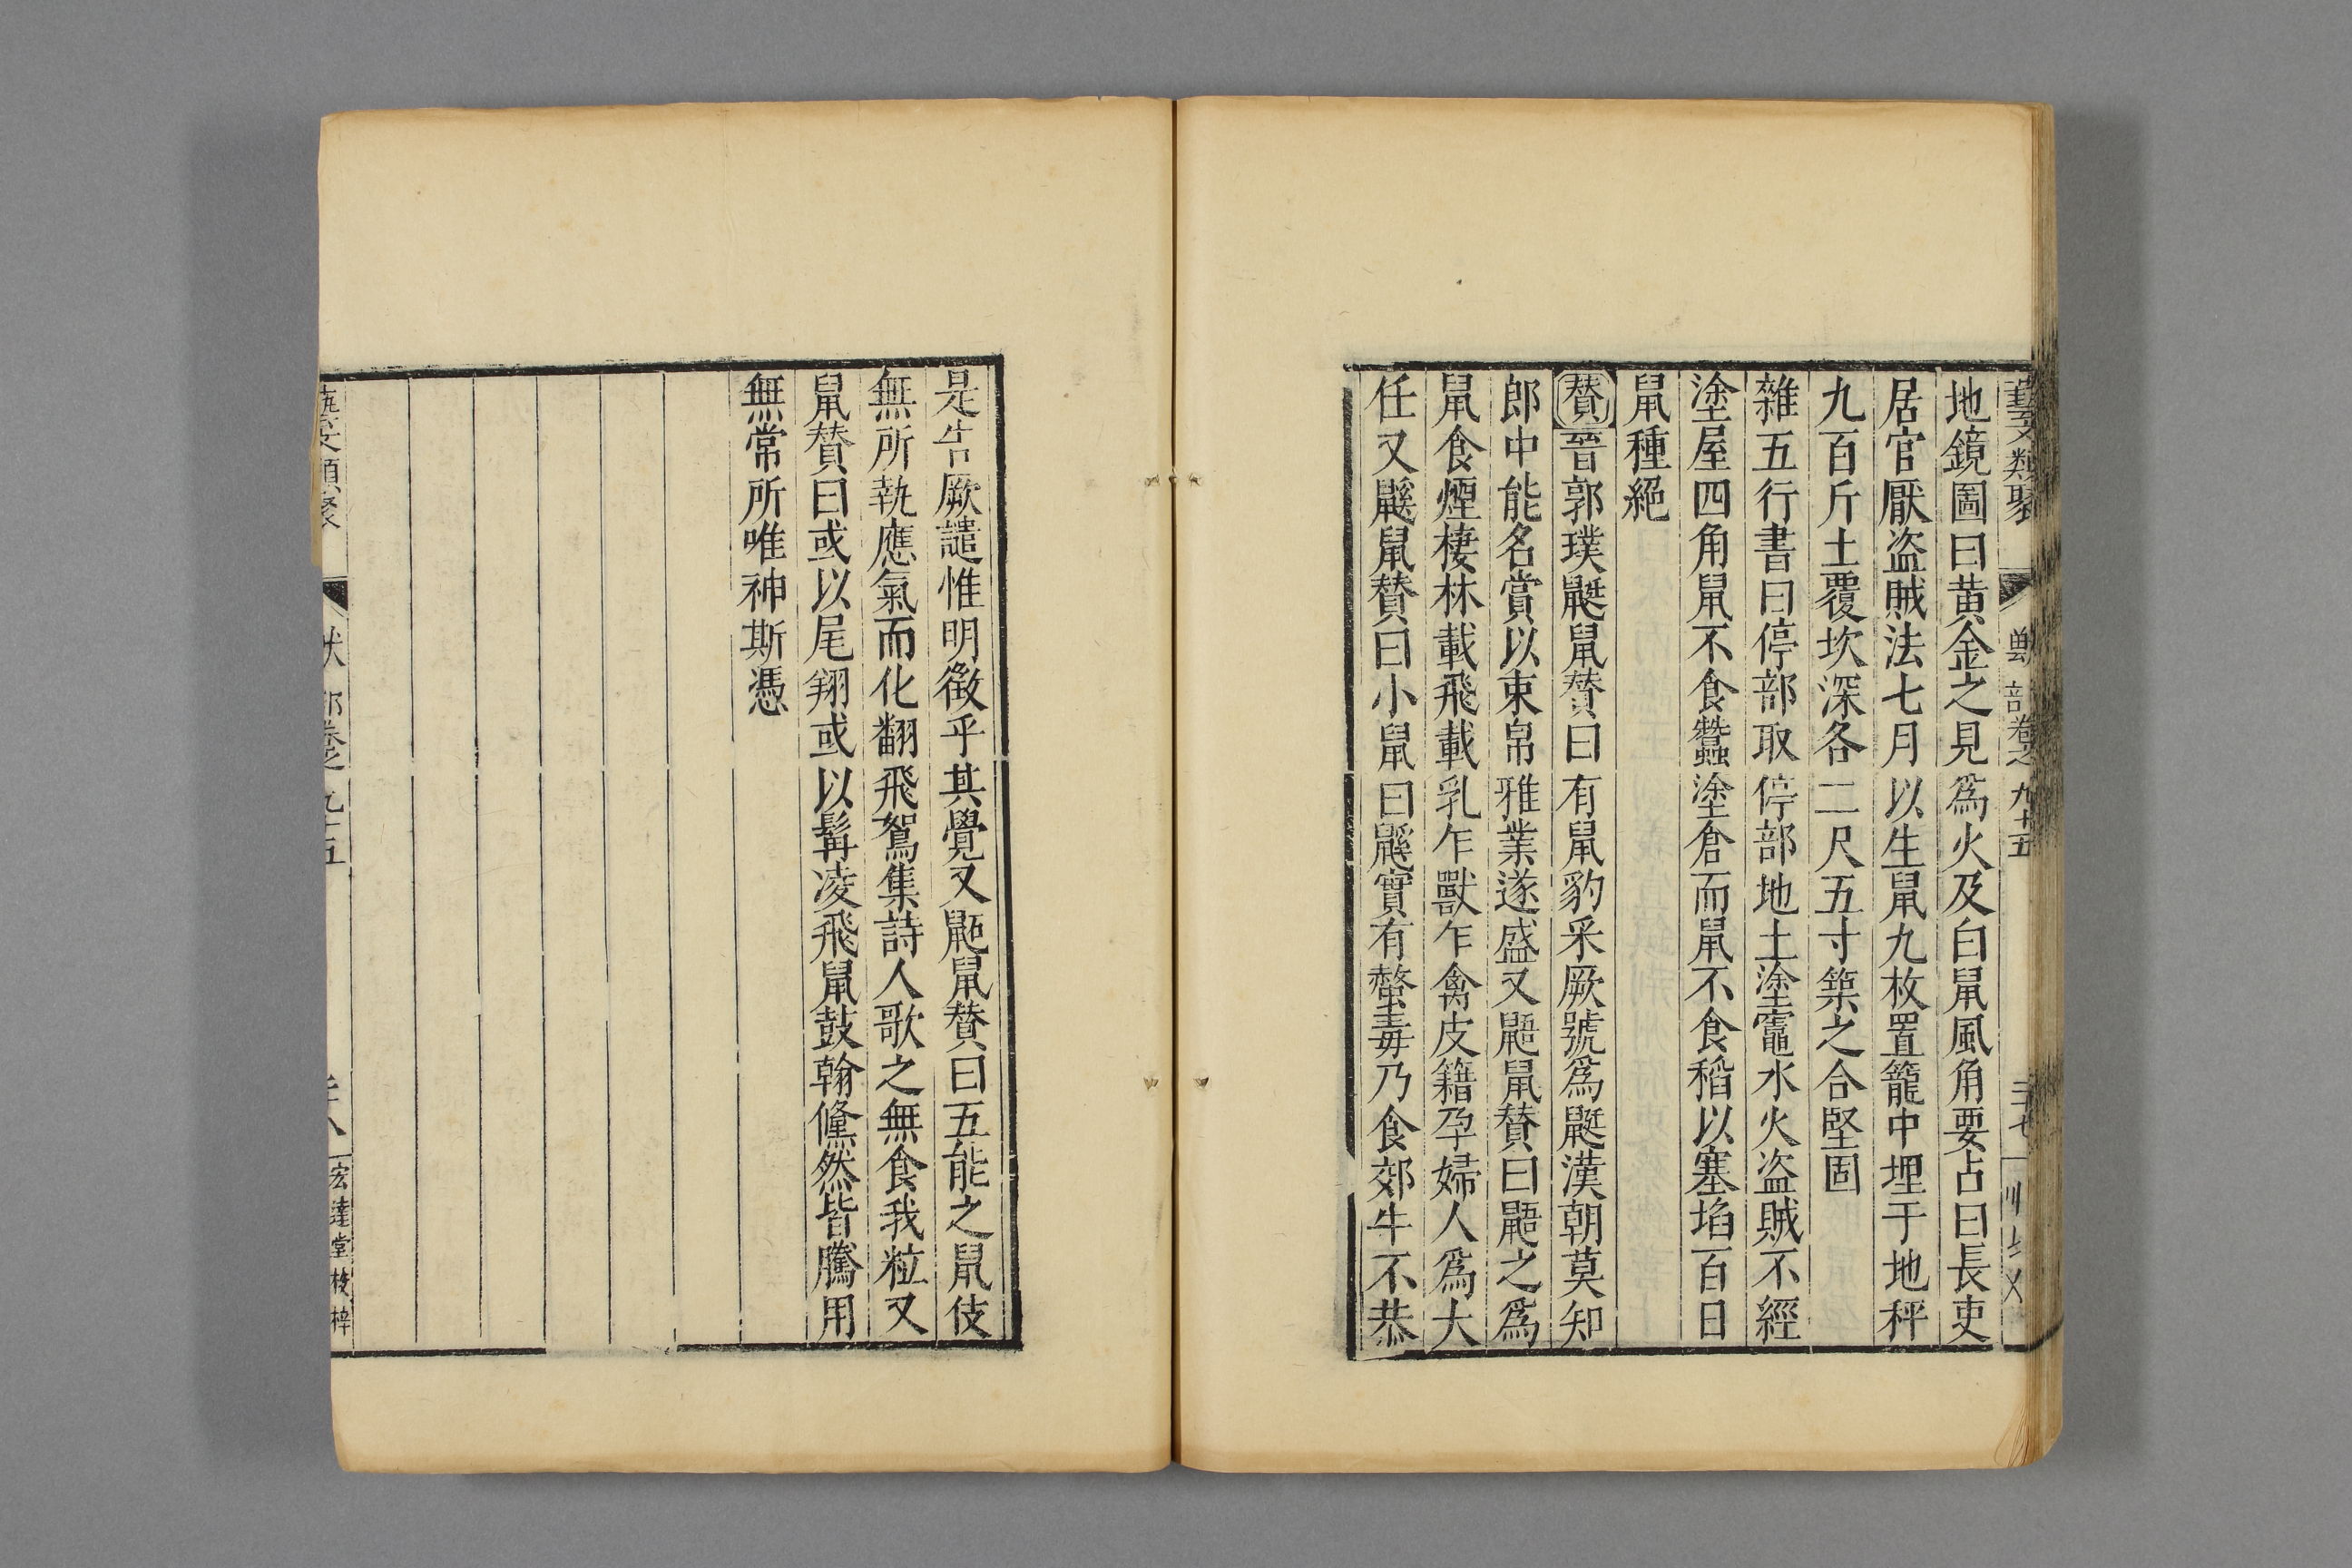 藝文類聚 獸部卷之九十五 三十七
地鏡圖曰黃金之見爲火及白鼠風角要占曰長吏
居官厭盜賊法七月以生鼠九枚置籠中埋于地秤
九百斤土覆坎深各二尺五寸築之合堅固
雜五行書曰停部取停部地土塗竈水火盜賊不經
塗屋四角鼠不食蠶塗倉而鼠不食稻以塞埳百日
鼠種絕
贊晉郭璞鼮鼠贊曰有鼠豹采厥號爲鼮漢朝莫知
郎中能名賞以束帛雅業遂盛又鼯鼠贊曰鼯之爲
鼠食煙棲林載飛載乳乍獸乍禽皮籍孕婦人爲大
任又鼷鼠贊曰小鼠曰鼷實有螫毒乃食郊牛不恭
是告厥譴惟明徵乎其覺又鼫鼠贊曰五能之鼠伎
無所執應氣而化翻飛鴽集詩人歌之無食我粒又
鼠贊曰或以尾翔或以髯凌飛鼠鼓翰儵然皆騰用
無常所唯神斯憑
藝文類聚 獸部卷之九十五 三十八 宏達堂校梓